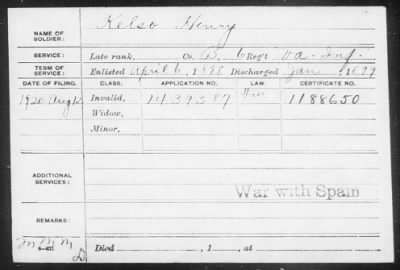 Kelso Henry
NAME OF
SOLDIER:
SERVICE: Late rank, Co. B, 6 Reg't Va. Inf.
TERM OF
SERVICE: Enlisted April 6, 1898 Discharged Jan 1899
DATE OF FILING. CLASS. APPLICATION NO. CERTIFICATE NO.
1920 Aug 12 Invalid, 1439587 1188650
Widow,
Minor,
ADDITIONAL
SERVICES:
War with Spain
REMARKS:
M M M
Died , 1 , at